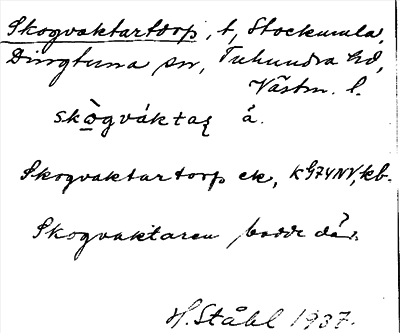 Skogvaktartorp, t, Stockumla,
Dingtuna sn, Tuhundra hd,
Västm. l.
skògváktaʈ å.
Skogvaktartorp ek, KG74NV, kb.
Skogvaktaren bodde där.
H. Ståhl 1937.